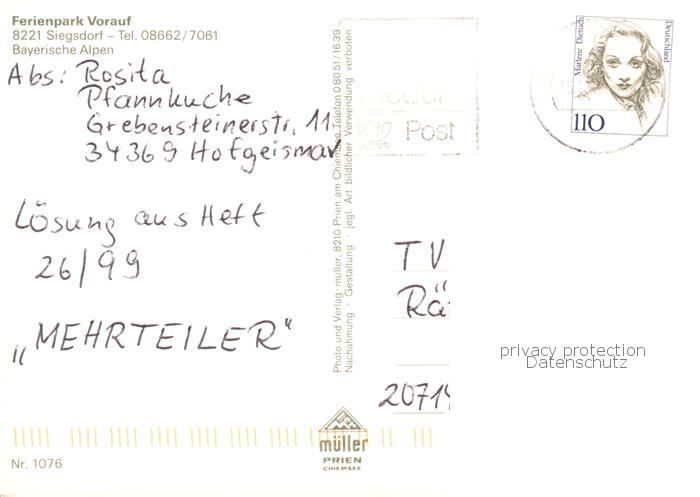 Ferienpark Vorauf
8221 Siegsdorf – Tel. 08662/7061
Bayerische Alpen
Abs: Rosita
Pfannkuche
Grebensteinerstr. 11
34369 Hofgeismar
Lösung aus Heft
26/99
„MEHRTEILER"
Nr. 1076
Photo und Verlag: müller, 8210 Prien am Chiemsee, Telefon 08051/1639
Nachahmung · Gestaltung · jegl. Art bildlicher Verwendung verboten
müller
PRIEN
CHIEMSEE
Post
Marlene Dietrich
Deutschland
110
TV
Rä
20714
privacy protection
Datenschutz